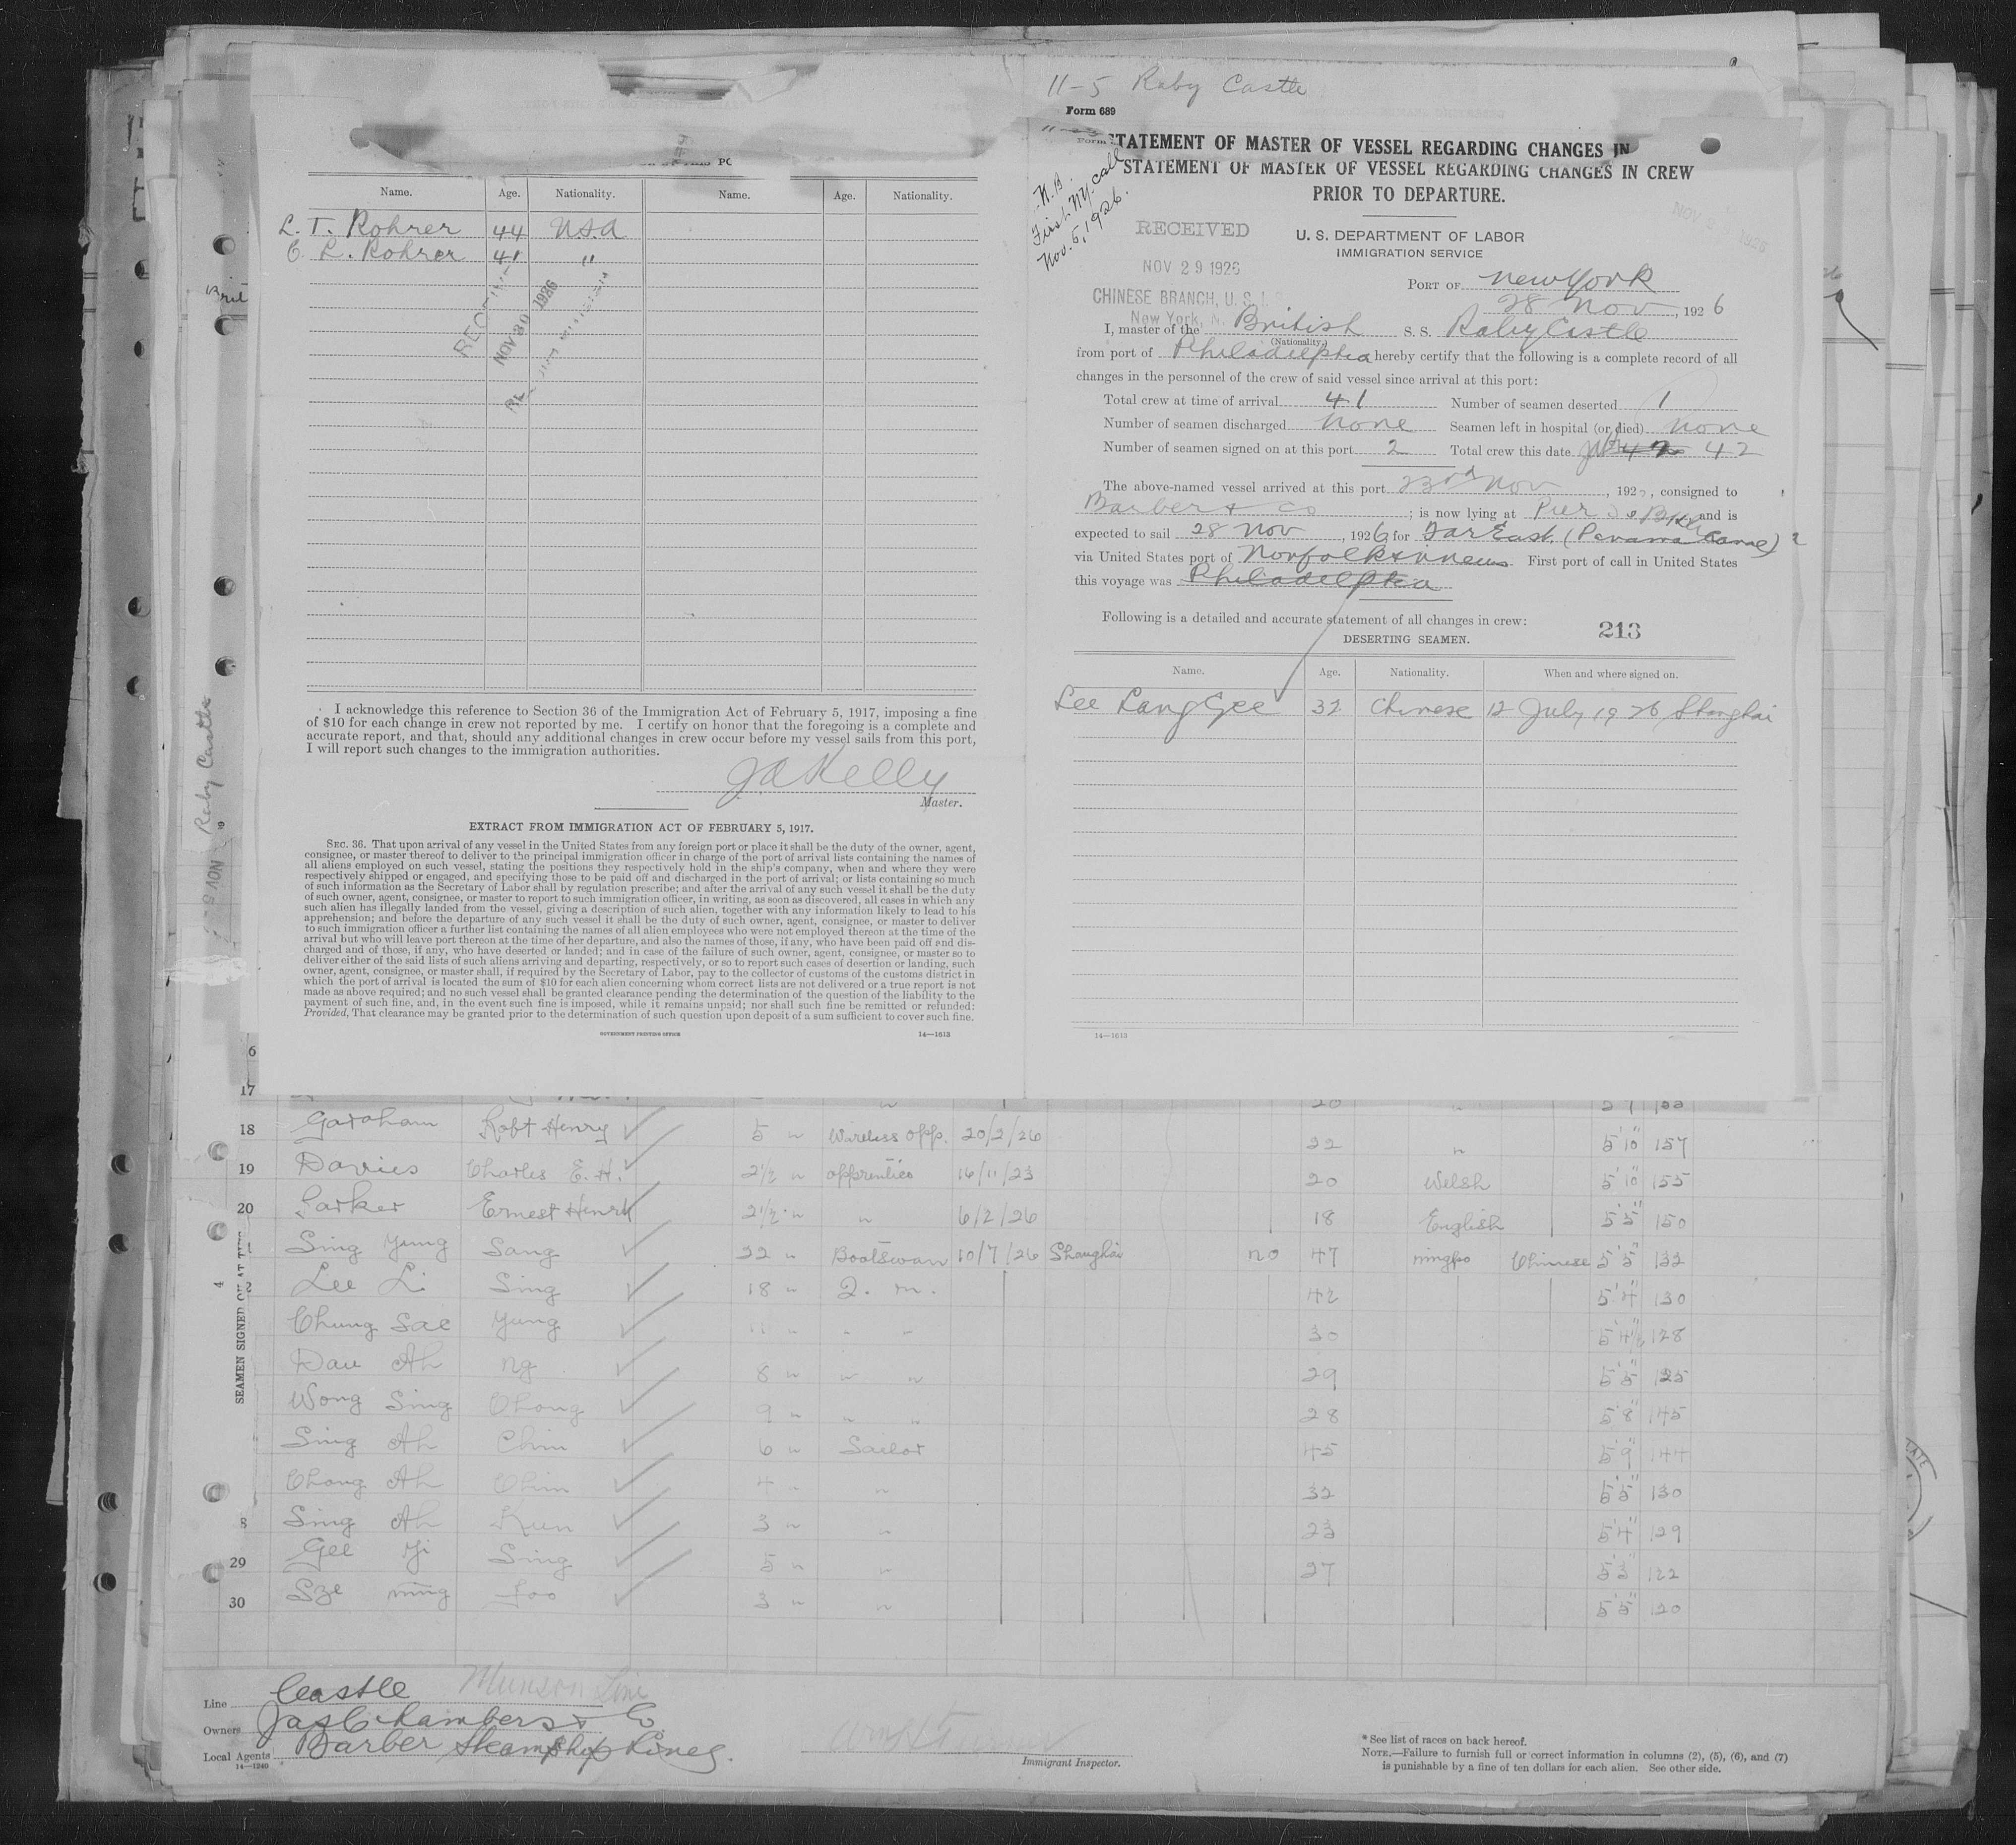 11-5 Raby Castle
Form 689
STATEMENT OF MASTER OF VESSEL REGARDING CHANGES IN
STATEMENT OF MASTER OF VESSEL REGARDING CHANGES IN CREW
PRIOR TO DEPARTURE.
N.B.
First N.Y. call
Nov. 5, 1926.
RECEIVED
NOV 29 1926
CHINESE BRANCH, U. S. I. S.
New York, N.
U. S. DEPARTMENT OF LABOR
IMMIGRATION SERVICE
PORT OF New York
28 Nov, 1926
I, master of the British S. S. Raby Castle
(Nationality.)
from port of Philadelphia hereby certify that the following is a complete record of all
changes in the personnel of the crew of said vessel since arrival at this port:
Total crew at time of arrival 41 Number of seamen deserted 1
Number of seamen discharged None Seamen left in hospital (or died) None
Number of seamen signed on at this port 2 Total crew this date 42
The above-named vessel arrived at this port 23rd Nov, 192 , consigned to
Barber & Co; is now lying at Pier and is
expected to sail 28 Nov, 1926 for Far East. (Panama Canal)
via United States port of Norfolk & N News First port of call in United States
this voyage was Philadelphia
Following is a detailed and accurate statement of all changes in crew:
213
DESERTING SEAMEN.
Name. Age. Nationality. When and where signed on.
Lee Lang Gee 32 Chinese 12 July 1926 Shanghai
14—1613
Name. Age. Nationality. Name. Age. Nationality.
L. T. Rohrer 44 USA
C. L. Rohrer 41 "
NOV 30 1926
I acknowledge this reference to Section 36 of the Immigration Act of February 5, 1917, imposing a fine
of $10 for each change in crew not reported by me. I certify on honor that the foregoing is a complete and
accurate report, and that, should any additional changes in crew occur before my vessel sails from this port,
I will report such changes to the immigration authorities.
J A Kelly
Master.
EXTRACT FROM IMMIGRATION ACT OF FEBRUARY 5, 1917.
SEC. 36. That upon arrival of any vessel in the United States from any foreign port or place it shall be the duty of the owner, agent,
consignee, or master thereof to deliver to the principal immigration officer in charge of the port of arrival lists containing the names of
all aliens employed on such vessel, stating the positions they respectively hold in the ship's company, when and where they were
respectively shipped or engaged, and specifying those to be paid off and discharged in the port of arrival; or lists containing so much
of such information as the Secretary of Labor shall by regulation prescribe; and after the arrival of any such vessel it shall be the duty
of such owner, agent, consignee, or master to report to such immigration officer, in writing, as soon as discovered, all cases in which any
such alien has illegally landed from the vessel, giving a description of such alien, together with any information likely to lead to his
apprehension; and before the departure of any such vessel it shall be the duty of such owner, agent, consignee, or master to deliver
to such immigration officer a further list containing the names of all alien employees who were not employed thereon at the time of the
arrival but who will leave port thereon at the time of her departure, and also the names of those, if any, who have been paid off and dis-
charged and of those, if any, who have deserted or landed; and in case of the failure of such owner, agent, consignee, or master so to
deliver either of the said lists of such aliens arriving and departing, respectively, or so to report such cases of desertion or landing, such
owner, agent, consignee, or master shall, if required by the Secretary of Labor, pay to the collector of customs of the customs district in
which the port of arrival is located the sum of $10 for each alien concerning whom correct lists are not delivered or a true report is not
made as above required; and no such vessel shall be granted clearance pending the determination of the question of the liability to the
payment of such fine, and, in the event such fine is imposed, while it remains unpaid; nor shall such fine be remitted or refunded:
Provided, That clearance may be granted prior to the determination of such question upon deposit of a sum sufficient to cover such fine.
GOVERNMENT PRINTING OFFICE 14—1613
Raby Castle
SEAMEN SIGNED ON AT THIS
6
17
18 Garsham Robt Henry 5 " Wireless Opp. 20/2/26 22 " 5'10" 157
19 Davies Charles E. H. 2½ " apprentice 16/11/23 20 Welsh 5'10" 155
20 Parker Ernest Henry 2½ " " 6/2/26 18 English 5'5" 150
Sing Yung Sang 22 " Boatswan 10/7/26 Shanghai no 47 ningpo Chinese 5'5" 132
Lee Li Sing 18 " Q. m. 42 5'4" 130
Chung Sae Yung 11 " " " 30 5'4½ 128
Dau Ah ng 8 " " " 29 5'5" 125
Wong Sing Chong 9 " " " 28 5'8" 145
Sing Ah Chin 6 " Sailor 45 5'9" 144
Chong Ah Chim 4 " " 32 5'5" 130
8 Sing Ah Kun 3 " " 23 5'4" 129
29 Gee Yi Sing 5 " " 27 5'3" 122
30 Sze ming Foo 3 " " 5'5" 120
Line Castle Munson Line
Owners Jas Chambers & Co.
Local Agents Barber Steamship Lines.
14—1240
Immigrant Inspector.
* See list of races on back hereof.
NOTE.—Failure to furnish full or correct information in columns (2), (5), (6), and (7)
is punishable by a fine of ten dollars for each alien. See other side.